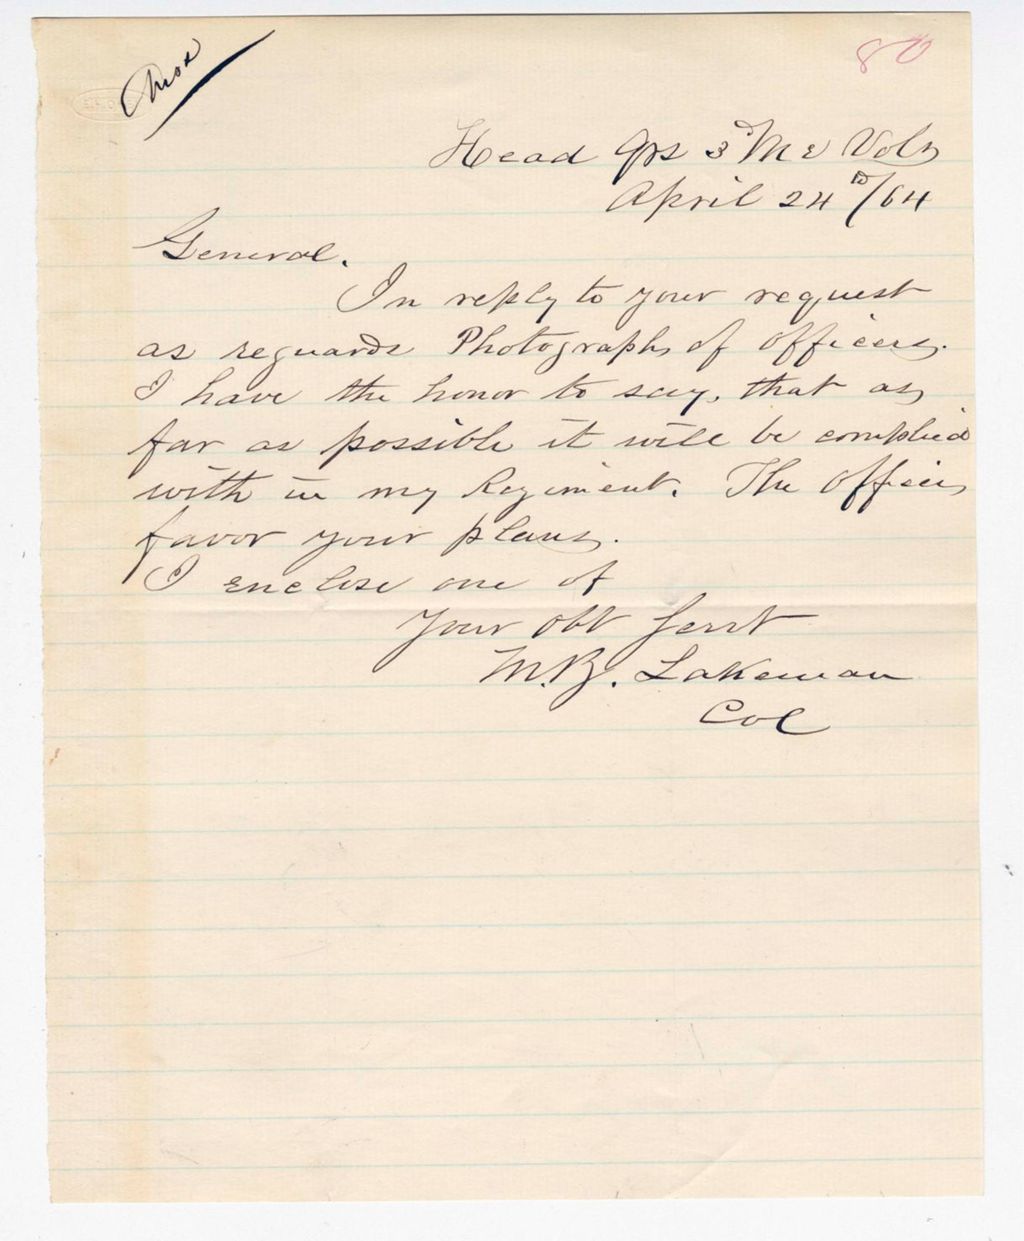 80
Head Qrs 3d Me Vols
April 24th/64
General.
In reply to your request
as reguards Photographs of officers.
I have the honor to say, that as
far as possible it will be complied
with in my Regiment. The officers
favor your plans.
I enclose one of
Your Obt Servt
M.B. Lakeman
Col